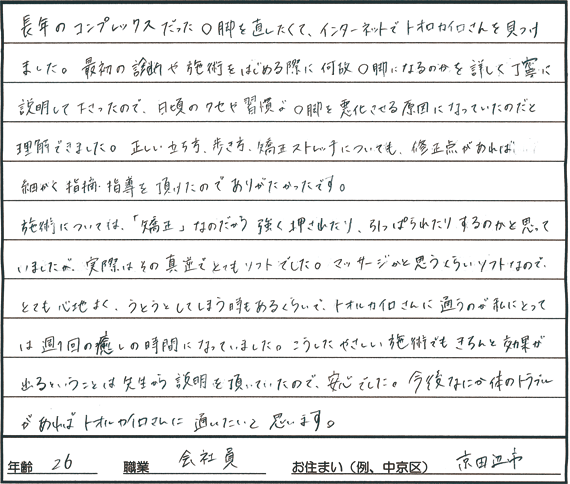 長年のコンプレックスだったO脚を直したくて、インターネットでトオルカイロさんを見つけ
ました。最初の診断や施術をはじめる際に何故O脚になるのかを詳しく丁寧に
説明して下さったので、日頃のクセや習慣がO脚を悪化させる原因になっていたのだと
理解できました。正しい立ち方、歩き方、矯正ストレッチについても、修正点があれば
細かく指摘・指導を頂けたのでありがたかったです。
施術については、「矯正」なのだから強く押されたり、引っぱられたりするのかと思って
いましたが、実際はその真逆でとてもソフトでした。マッサージかと思うくらいソフトなので、
とても心地よく、うとうとしてしまう時もあるくらいで、トオルカイロさんに通うのが私にとって
は週1回の癒しの時間になっていました。こうしたやさしい施術でもきちんと効果が
出るということは先生から説明を頂いていたので、安心でした。今後なにか体のトラブル
があればトオルカイロさんに通いたいと思います。
年齢 26 職業 会社員 お住まい（例、中京区） 京田辺市